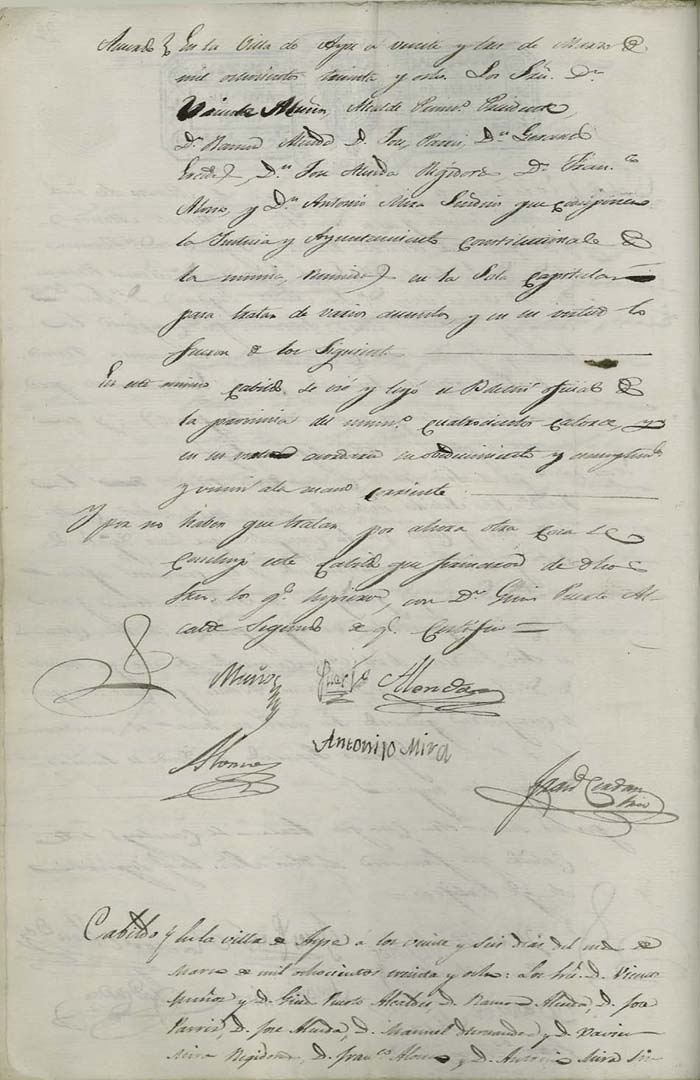 Acuerdo En la Villa de Ayze á veinte y tres de Marzo de
mil ochocientos treinta y ocho. Los Sres. Dn.
Vicente Muñoz, Alcalde Primo. Presidente,
Dn. Ramon Alenda Dn. Jose Parris, Dn.
Dn. Jose Alenda Regidores Dn. Franco.
Alonso, y Dn. Antonio Mira Sindico que componen
la Justicia y Ayuntamiento Constitucional de
la misma, Reunidos en la Sala Capitular
para tratar de varios asuntos, y en su virtud lo
fueron de los Siguientes
En este mismo Cabildo se vió y leyó el Boletin oficial de
la provincia del numo. cuatrocientos catorce, y
en su acordaron su obedecimiento y cumplimto.
y unir á la mano corriente
Y por no haber que tratar por ahora otra Cosa se
Concluyó este Cabildo que firmaron de dhos
Sres. los qe. supieron, con Dn. Gines Puerto Al-
calde Segundo de qe. Certifico =
Muñoz Puerto Alenda
Alonso Antonijo Mira
Cabildo En la villa de Ayze á los veinte y seis dias del mes de
Marzo de mil ochocientos treinta y ocho: Los Sres. D. Vicente
Muñoz y D. Gines Puerto Alcaldes, D. Ramon Alenda, D. Jose
Parris, D. Jose Alenda, D. Manuel Hernandez y D. Xavier
Mira Regidores, D. Franco. Alonso, y D. Antonio Mira Sin-